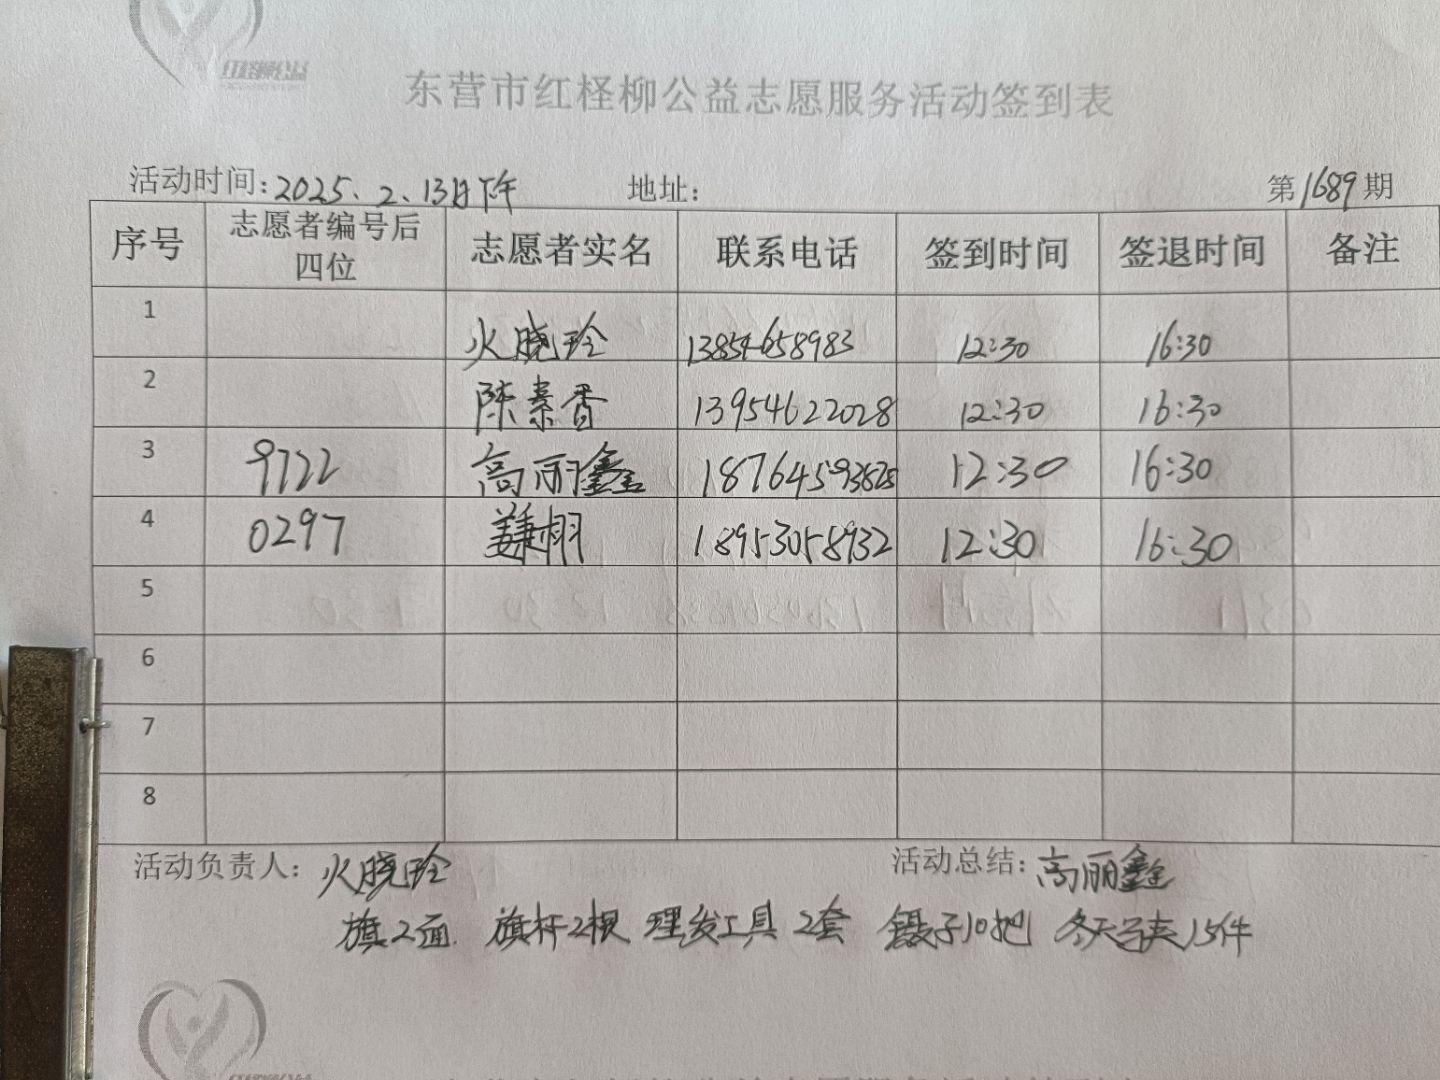 红柽柳公益
东营市红柽柳公益志愿服务活动签到表
活动时间：2025、2、13日下午 地址： 第1689期
序号 志愿者编号后四位 志愿者实名 联系电话 签到时间 签退时间 备注
1 火晓玲 13854658983 12:30 16:30
2 陈素香 13954622028 12:30 16:30
3 9722 高丽鑫 18764593828 12:30 16:30
4 0297 姜栩 18953058932 12:30 16:30
5
6
7
8
活动负责人：火晓玲 活动总结：高丽鑫
旗2面 旗杆2根 理发工具2套 镊子10把 冬天马夹15件